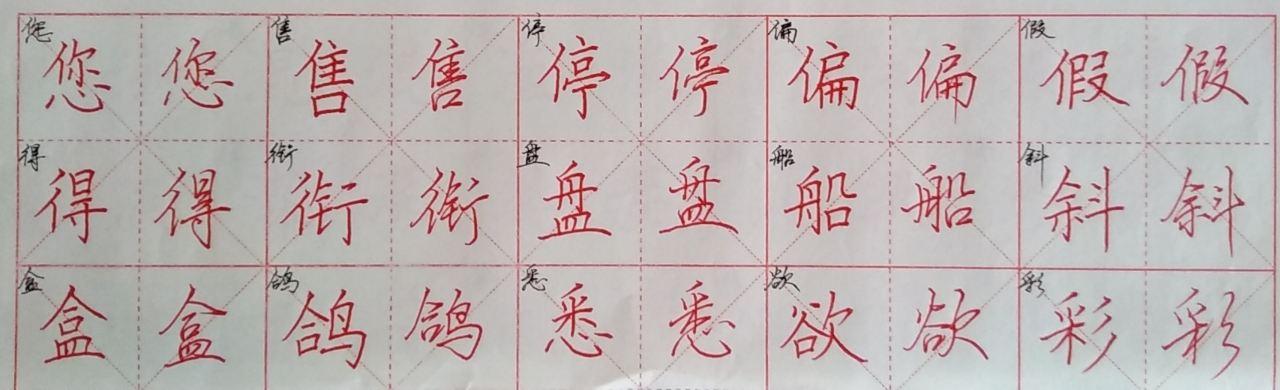 您 售 停 偏 假
您 您 售 售 停 停 偏 偏 假 假
得 衔 盘 船 斜
得 得 衔 衔 盘 盘 船 船 斜 斜
盒 鸽 悉 欲 彩
盒 盒 鸽 鸽 悉 悉 欲 欲 彩 彩